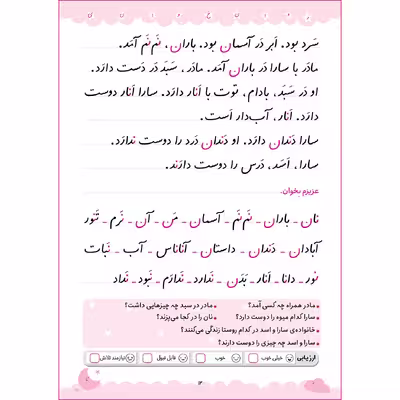 سَرد بود. اَبر دَر آسمان بود. باران، نَم‌نَم آمَد.
مادَر با سارا دَر باران آمَد. مادَر، سَبَد دَر دَست دارَد.
او دَر سَبَد، بادام، توت با اَنار دارَد. سارا اَنار دوست
دارَد. اَنار، آب‌دار اَست.
سارا دَندان دارَد. او دَندان دَرد را دوست نَدارَد.
سارا، اَسَد، دَرس را دوست دارَند.
عزیزم بخوان.
نان ـ باران ـ نَم‌نَم ـ آسمان ـ مَن ـ آن ـ نَرم ـ تَنور
آبادان ـ دَندان ـ داستان ـ آناناس ـ آب ـ نَبات
نور ـ دانا ـ اَنار ـ بَدَن ـ نَدارد ـ نَدارَم ـ نَبود ـ نَداد
• مادر همراه چه کسی آمد؟ • مادر در سبد چه چیزهایی داشت؟
• سارا کدام میوه را دوست دارد؟ • نان را در کجا می‌پزند؟
• خانواده‌ی سارا و اسد در کدام روستا زندگی می‌کنند؟
• سارا و اسد چه چیزی را دوست دارند؟
ارزیابی خیلی خوب خوب قابل قبول نیازمند تلاش